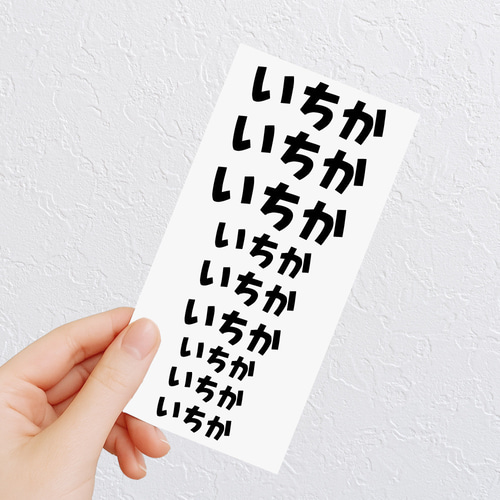 いちか
いちか
いちか
いちか
いちか
いちか
いちか
いちか
いちか